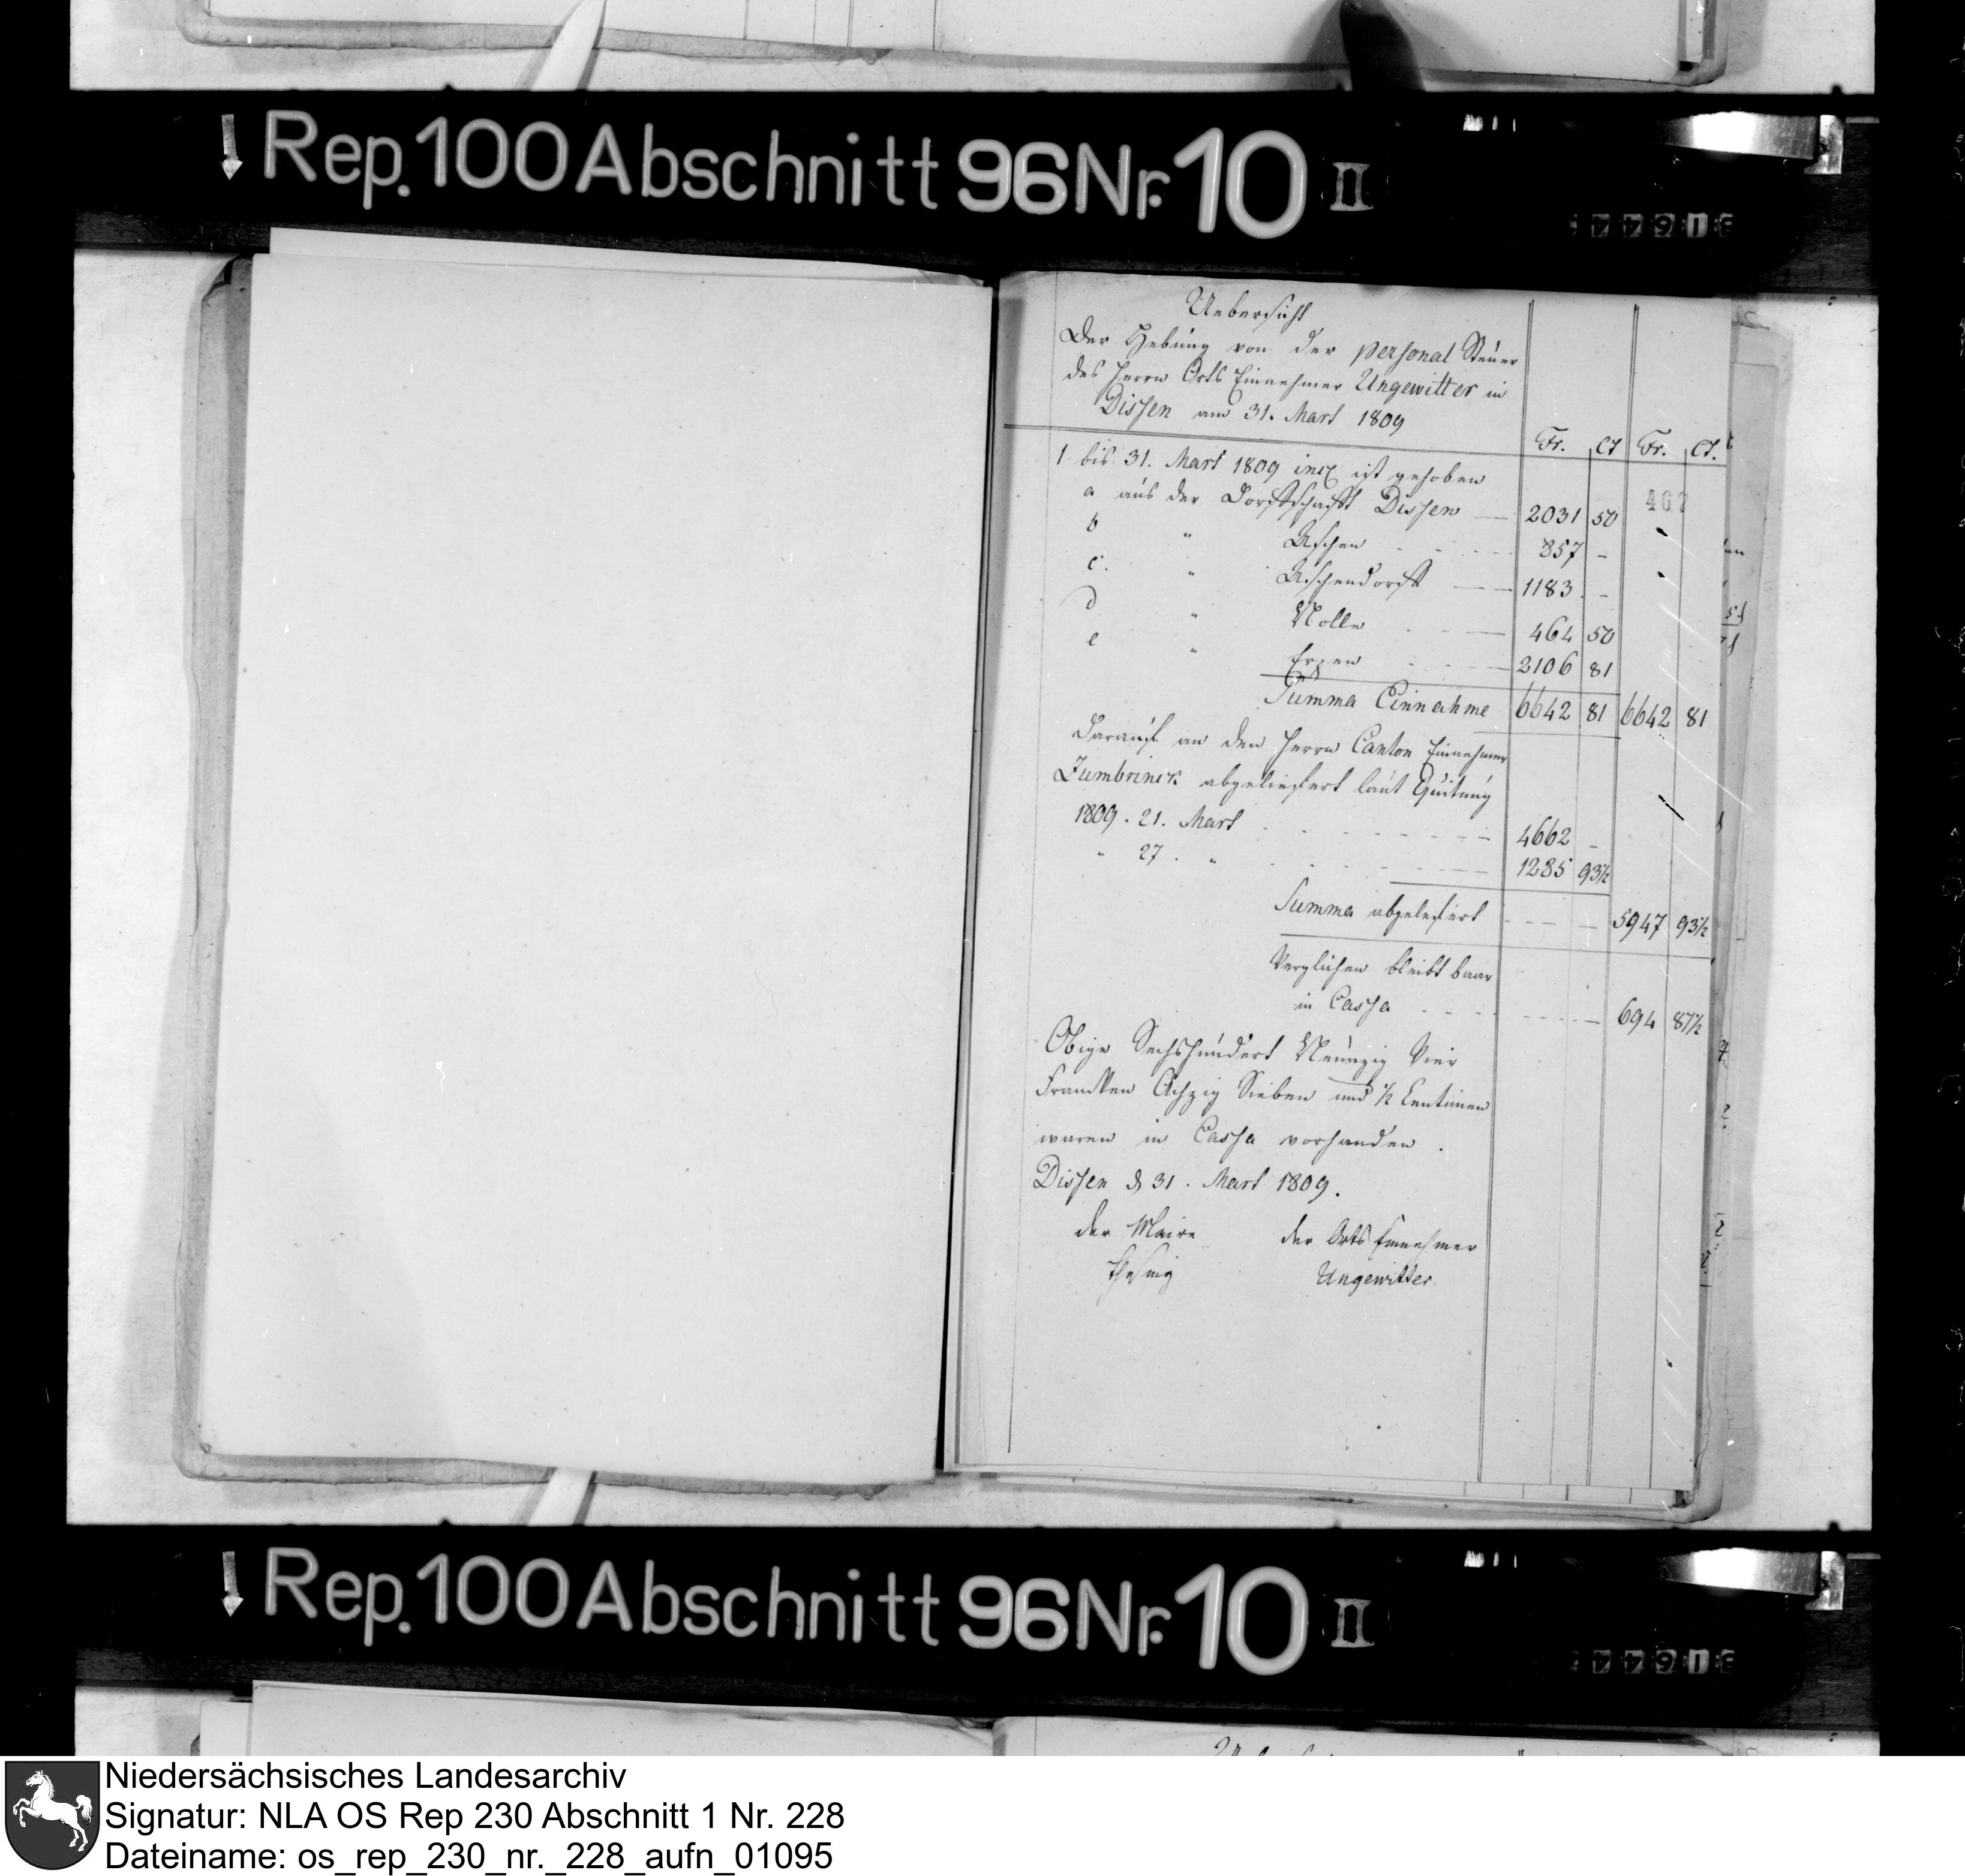 Rep. 100 Abschnitt 96 Nr. 10 II
Uebersicht
Der Hebung von der personal Steuer
des Herrn Orts Einnehmer Ungewitter in
Dissen am 31. Mart 1809
Fr. Ct Fr. Ct.
1 bis 31. Mart 1809 incl ist gehoben
467
a aus der Dorffschafft Dissen 2031 50
b " Aschen 857 -
c. " Aschendorff 1183 -
d " Nolle 464 50
e " Erpen 2106 81
Summa Einnahme 6642 81 6642 81
Darauf an den Herrn Canton Einnehmer
Zumbrinck abgeliefert laut Quitung
1809. 21. Mart 4662 -
" 27. " 1285 93½
Summa abgeliefert 5947 93½
Verglichen bleibt baar
in Cassa 694 87½
Obige Sechshundert Neunzig Vier
Francken Achzig Sieben und ½ Centimen
waren in Cassa vorhanden.
Dissen d 31. Mart 1809.
der Maire der Orts Einnehmer
Ungewitter
Rep. 100 Abschnitt 96 Nr. 10 II
Niedersächsisches Landesarchiv
Signatur: NLA OS Rep 230 Abschnitt 1 Nr. 228
Dateiname: os_rep_230_nr._228_aufn_01095